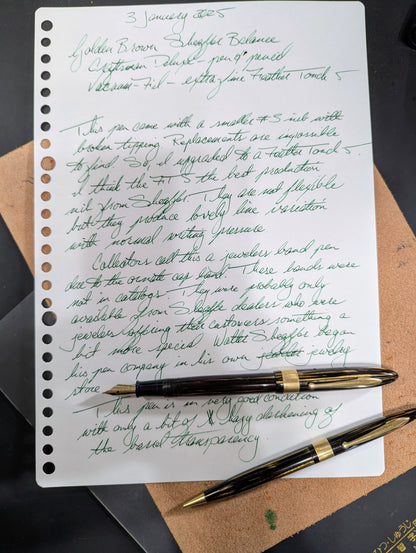 3 January 2025
Golden Brown Sheaffer Balance
Craftsman deluxe - pen & pencil
Vacuum-Fil - extra fine Feather Touch 5
This pen came with a smaller #3 nib with
broken tipping. Replacements are impossible
to find. So, I upgraded to a Feather Touch 5.
I think the FT 5 the best production
nib from Sheaffer. They are not flexible
but they produce lovely line variation
with normal writing pressure
Collectors call this a jewelers band pen
due to the ornate cap band. These bands were
not in catalogs. They were probably only
available from Sheaffer dealers who were
jewelers offering their customers something a
bit more special. Walter Sheaffer began
his pen company in his own jewelry
store
This pen is in very good condition
with only a bit of hazy darkening of
the barrel transparency.